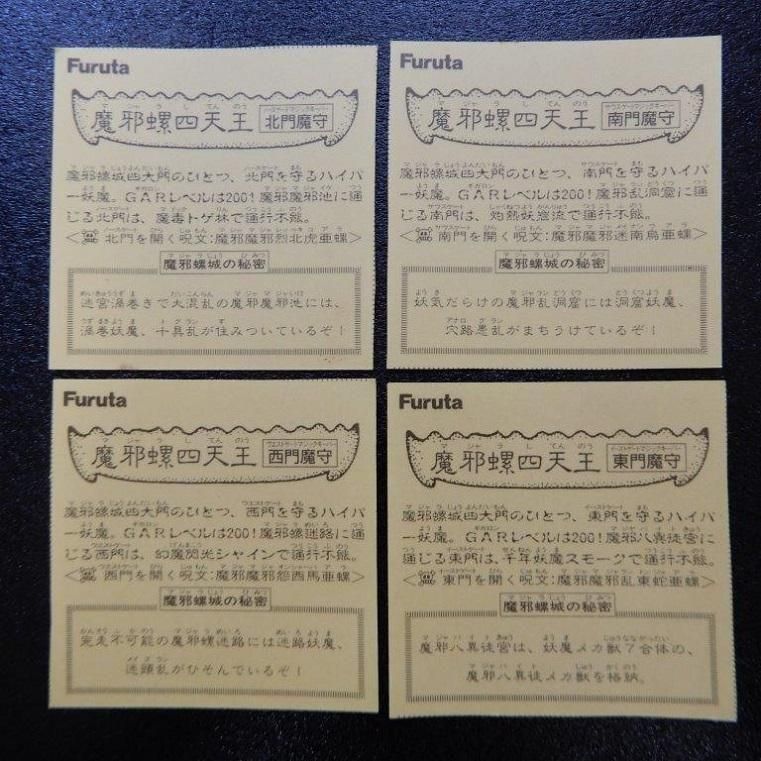 Furuta
魔邪螺四天王 北門魔守
魔邪螺城四大門のひとつ、北門を守るハイパ
ー妖魔。GARレベルは200!魔邪魔邪池に通
じる北門は、魔毒トゲ林で通行不能。
<北門を開く呪文:魔邪魔邪烈北虎亜螺>
魔邪螺城の秘密
迷宮渦巻きで大混乱の魔邪魔邪池には、
渦巻妖魔、十具乱が住みついているぞ!
Furuta
魔邪螺四天王 南門魔守
魔邪螺城四大門のひとつ、南門を守るハイパ
ー妖魔。GARレベルは200!魔邪乱洞窟に通
じる南門は、灼熱妖岩流で通行不能。
<南門を開く呪文:魔邪魔邪迷南鳥亜螺>
魔邪螺城の秘密
妖気だらけの魔邪乱洞窟には洞窟妖魔、
穴路愚乱がまちうけているぞ!
Furuta
魔邪螺四天王 西門魔守
魔邪螺城四大門のひとつ、西門を守るハイパ
ー妖魔。GARレベルは200!魔邪螺迷路に通
じる西門は、幻魔閃光シャインで通行不能。
<西門を開く呪文:魔邪魔邪怨西馬亜螺>
魔邪螺城の秘密
完走不可能の魔邪螺迷路には迷路妖魔、
迷頭乱がひそんでいるぞ!
Furuta
魔邪螺四天王 東門魔守
魔邪螺城四大門のひとつ、東門を守るハイパ
ー妖魔。GARレベルは200!魔邪八異徒宮に
通じる東門は、千年妖魔スモークで通行不能。
<東門を開く呪文:魔邪魔邪乱東蛇亜螺>
魔邪螺城の秘密
魔邪八異徒宮は、妖魔メカ獣7合体の、
魔邪八異徒メカ獣を格納。